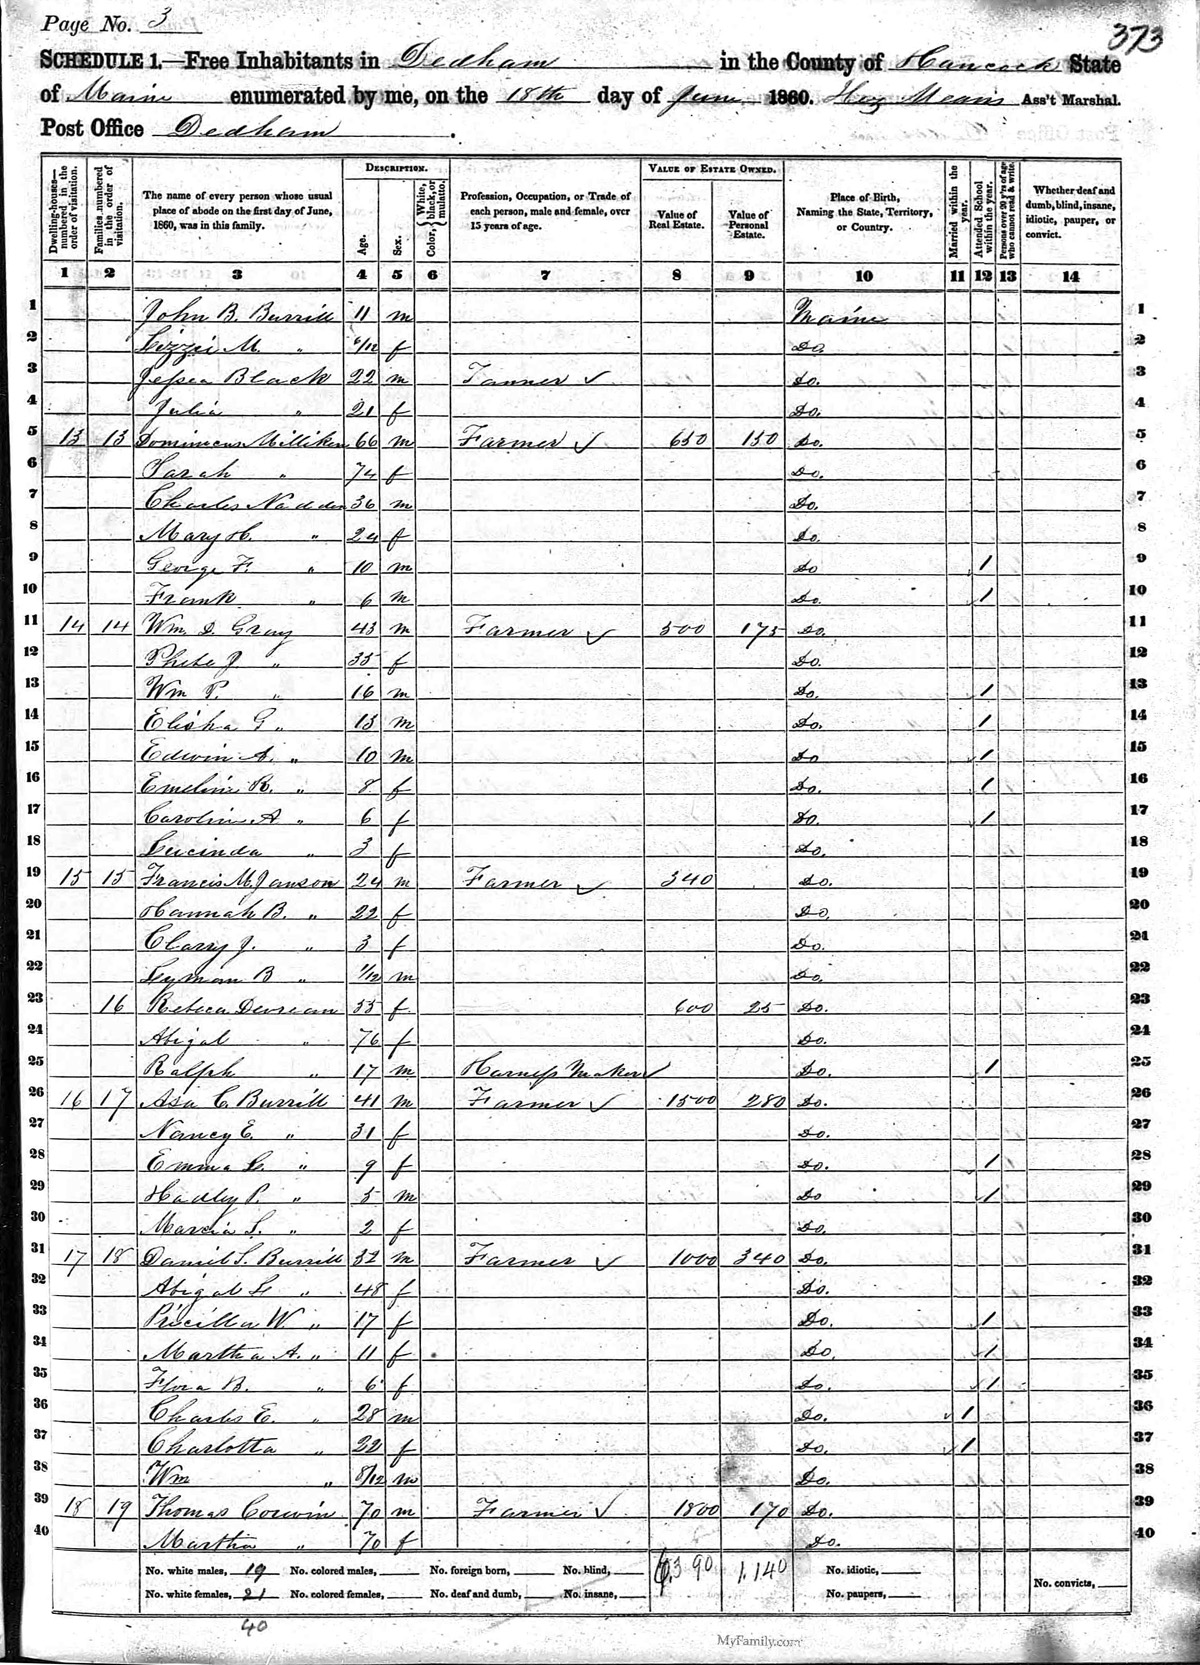 Page No. 3
373
SCHEDULE 1.—Free Inhabitants in Dedham in the County of Hancock State
of Maine enumerated by me, on the 18th day of June 1860. Hez Means Ass't Marshal.
Post Office Dedham.
Dwelling-houses—numbered in the order of visitation.
Families numbered in the order of visitation.
The name of every person whose usual place of abode on the first day of June, 1860, was in this family.
DESCRIPTION.
Age.
Sex.
Color, { White, black, or mulatto.
Profession, Occupation, or Trade of each person, male and female, over 15 years of age.
VALUE OF ESTATE OWNED.
Value of Real Estate.
Value of Personal Estate.
Place of Birth, Naming the State, Territory, or Country.
Married within the year.
Attended School within the year.
Persons over 20 y'rs of age who cannot read & write.
Whether deaf and dumb, blind, insane, idiotic, pauper, or convict.
1 2 3 4 5 6 7 8 9 10 11 12 13 14
1 John B. Burrill 11 m Maine 1
2 Lizzie M. " 6/12 f Do. 2
3 Jessea Black 22 m Tanner ✓ Do. 3
4 Julia " 21 f Do. 4
5 13 13 Dominicus Milliken 66 m Farmer ✓ 650 150 Do. 5
6 Sarah " 74 f Do. 6
7 Charles 36 m Do. 7
8 Mary H. " 24 f Do. 8
9 George F. " 10 m Do 1 9
10 Frank " 6 m Do. 1 10
11 14 14 Wm. D. Gray 43 m Farmer ✓ 500 175 Do. 11
12 Phebe J. " 35 f Do. 12
13 Wm P. " 16 m Do. 1 13
14 Elisha G " 13 m Do. 1 14
15 Edwin A. " 10 m Do 1 15
16 Emeline R. " 8 f Do. 1 16
17 Caroline A " 6 f Do. 1 17
18 Lucinda " 3 f Do. 18
19 15 15 Francis M. Janson 24 m Farmer ✓ 340 Do. 19
20 Hannah B. " 22 f Do. 20
21 Clarry J. " 3 f Do. 21
22 Lyman B " 1/12 m Do. 22
23 16 Rebeca 55 f 600 25 Do. 23
24 Abigal " 76 f Do. 24
25 Ralph " 17 m Harness Maker ✓ Do. 1 25
26 16 17 Asa C. Burrill 41 m Farmer ✓ 1500 280 Do. 26
27 Nancy E. " 31 f Do. 27
28 Emma L. " 9 f Do. 1 28
29 Hadley P. " 5 m Do 1 29
30 Marcia S. " 2 f Do. 30
31 17 18 Daniel S. Burrill 52 m Farmer ✓ 1000 340 Do. 31
32 Abigal L " 48 f Do. 32
33 Pricilla W. " 17 f Do. 1 33
34 Martha A. " 11 f Do. 1 34
35 Flora B. " 6 f Do. 1 35
36 Charles E. " 28 m Do. 1 36
37 Charlotta " 22 f Do. 1 37
38 Wm " 8/12 m Do. 38
39 18 19 Thomas Cowin 70 m Farmer ✓ 1800 170 Do. 39
40 Martha " 70 f Do. 40
No. white males, 19 No. colored males, No. foreign born, No. blind, 6390 1.140 No. idiotic,
No. white females, 21 No. colored females, No. deaf and dumb, No. insane, No. paupers, No. convicts,
40
MyFamily.com